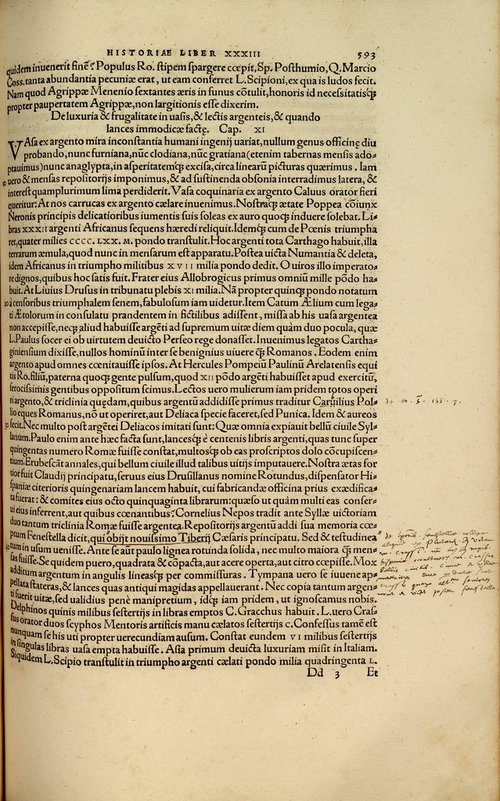 HISTORIAE LIBER XXXIII 593
quidem inuenerit finē? Populus Ro. stipem spargere cœpit, Sp. Posthumio, Q. Marcio
Coss. tanta abundantia pecuniæ erat, ut eam conferret L. Scipioni, ex qua is ludos fecit.
Nam quod Agrippæ Menenio sextantes æris in funus cōtulit, honoris id necessitatisq̃
propter paupertatem Agrippæ, non largitionis esse dixerim.
De luxuria & frugalitate in uasis, & lectis argenteis, & quando
lances immodicæ factę. Cap. XI
VAsa ex argento mira inconstantia humani ingenij uariat, nullum genus officinę diu
probando, nunc furniana, nūc clodiana, nūc gratiana (etenim tabernas mensis ado-
ptauimus) nunc anaglypta, in asperitatemq̃ excisa, circa linearū picturas quærimus. Iam
uero & mensas repositorijs imponimus, & ad sustinenda obsonia interradimus latera, &
interest quamplurimum lima perdiderit. Vasa coquinaria ex argento Caluus orator fieri
queritur: At nos carrucas ex argento cælare inuenimus. Nostraq̃ ætate Poppea cōiunx
Neronis principis delicatioribus iumentis suis soleas ex auro quoq̃ induere solebat. Li-
bras XXXII argenti Africanus sequens hæredi reliquit. Idemq̃ cum de Pœnis triumpha
ret, quater milies CCCC, LXX. M. pondo transtulit. Hoc argenti tota Carthago habuit, illa
terrarum æmula, quod nunc in mensarum est apparatu. Postea uicta Numantia & deleta,
idem Africanus in triumpho militibus XVII milia pondo dedit. O uiros illo imperato-
re dignos, quibus hoc satis fuit. Frater eius Allobrogicus primus omniū mille pōdo ha-
buit. At Liuius Drusus in tribunatu plebis XI milia. Nā propter quinq̃ pondo notatum
à censoribus triumphalem senem, fabulosum iam uidetur. Item Catum Ælium cum lega-
ti Ætolorum in consulatu prandentem in fictilibus adissent, missa ab his uasa argentea
non accepisse, necq̃ aliud habuisse argēti ad supremum uitæ diem quàm duo pocula, quæ
L. Paulus socer ei ob uirtutem deuicto Perseo rege donasset. Inuenimus legatos Cartha-
giniensium dixisse, nullos hominū inter se benignius uiuere q̃ Romanos. Eodem enim
argento apud omnes cœnitauisse ipsos. At Hercules Pompeiū Paulinū Arelatensis equi
tis Ro. filiū, paterna quoq̃ gente pulsum, quod XII pōdo argēti habuisset apud exercitū,
ferocissimis gentibus oppositum scimus. Lectos uero mulierum iam pridem totos operi
ri argento, & triclinia quędam, quibus argentū addidisse primus traditur Caruilius Pol-
lio eques Romanus, nō ut operiret, aut Deliaca specie faceret, sed Punica. Idem & aureos
fecit. Nec multo pòst argētei Deliacos imitati sunt: Quæ omnia expiauit bellū ciuile Syl-
lanum. Paulo enim ante hæc facta sunt, lancesq̃ è centenis libris argenti, quas tunc super
quingentas numero Romæ fuisse constat, multosq̃ ob eas proscriptos dolo cōcupiscen-
tium. Erubescāt annales, qui bellum ciuile illud talibus uitijs imputauere. Nostra ætas for
tior fuit Claudij principatu, seruus eius Drusillanus nomine Rotundus, dispensator Hi-
spaniæ citerioris quingenariam lancem habuit, cui fabricandæ officina prius exædifica-
ta fuerat: & comites eius octo quinquaginta librarum: quæso ut quàm multi eas conser-
ui eius inferrent, aut quibus cœnantibus? Cornelius Nepos tradit ante Syllæ uictoriam
duo tantum triclinia Romæ fuisse argentea. Repositorijs argentū addi sua memoria cœ-
ptum Fenestella dicit, qui obijt nouissimo Tiberij Cæsaris principatu. Sed & testudinea
tum in usum uenisse. Ante se aūt paulo lignea rotunda solida, nec multo maiora q̃ men-
sas fuisse. Se quidem puero, quadrata & cōpacta, aut acere operta, aut citro cœpisse. Mox
additum argentum in angulis lineasq̃ per commissuras. Tympana uero se iuuene ap-
pellata stateras, & lances quas antiqui magidas appellauerant. Nec copia tantum argen-
ti fuerit uitæ, sed ualidius penè manipretium, idq̃ iam pridem, ut ignoscamus nobis.
Delphinos quinis milibus sestertijs in libras emptos C. Gracchus habuit. L. uero Cras-
sus orator duos scyphos Mentoris artificis manu cælatos sestertijs c. Confessus tamē est
nunquam se his uti propter uerecundiam ausum. Constat eundem VI milibus sestertijs
in singulas libras uasa empta habuisse. Asia primum deuicta luxuriam misit in Italiam.
Siquidem L. Scipio transtulit in triumpho argenti cælati pondo milia quadringenta L.
Dd 3 Et